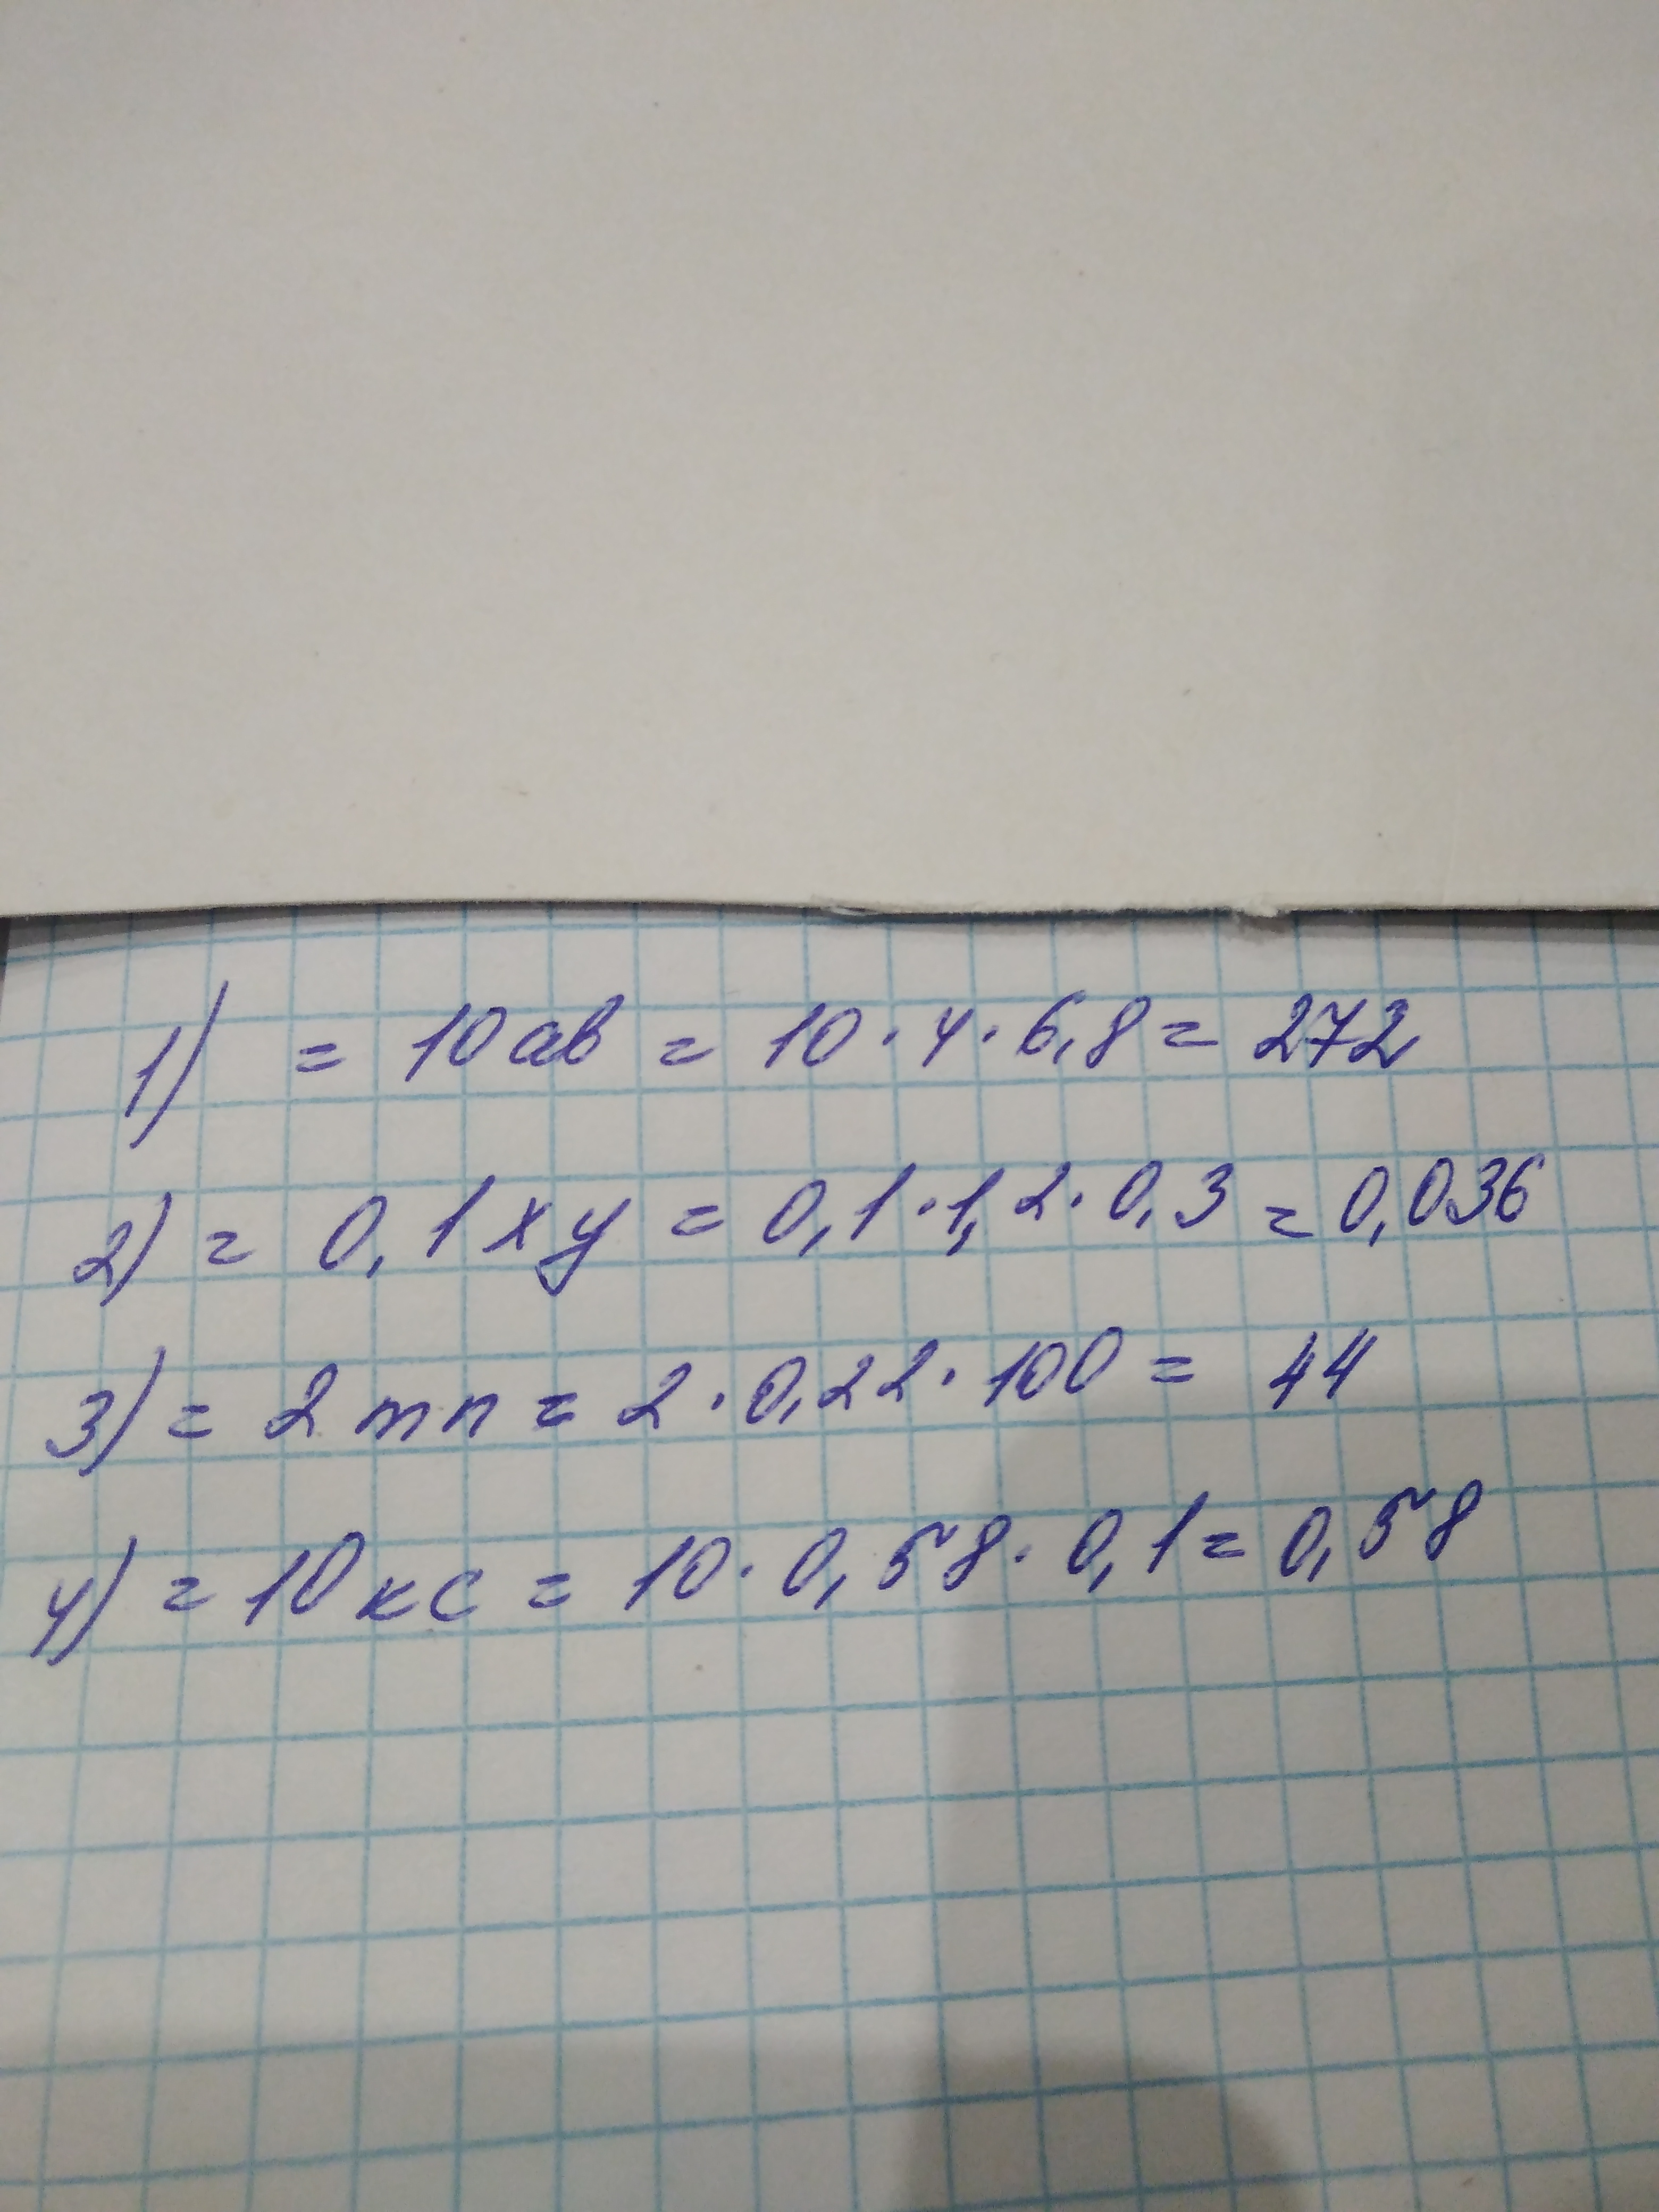 1) = 10ab = 10 · 4 · 6,8 = 272
2) = 0,1xy = 0,1 · 1,2 · 0,3 = 0,036
3) = 2mn = 2 · 0,22 · 100 = 44
4) = 10кс = 10 · 0,58 · 0,1 = 0,58